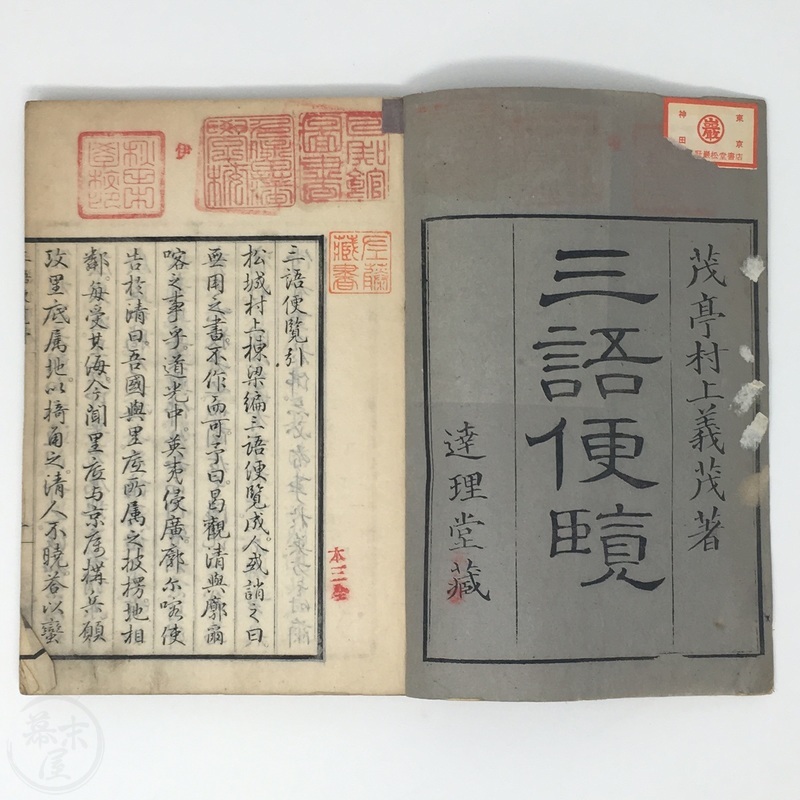 茂亭村上義茂著
三語便覧
達理堂藏
東京
神田
巖
巖松堂書店
三語便覧引
松城村上棟梁編三語便覧成。人或誚之曰
無用之書不作而可乎。曰曷觀清與廓爾
喀之事乎。道光中。英夷侵廣。廓尓喀使
告於清曰。吾國與里底所属之披楞地相
鄰。每受其海。今聞里底与京屬構兵。願
攻里底属地。以掎角之。清人不曉。答以蠻
伊
左藤藏書
本三全
幕末屋